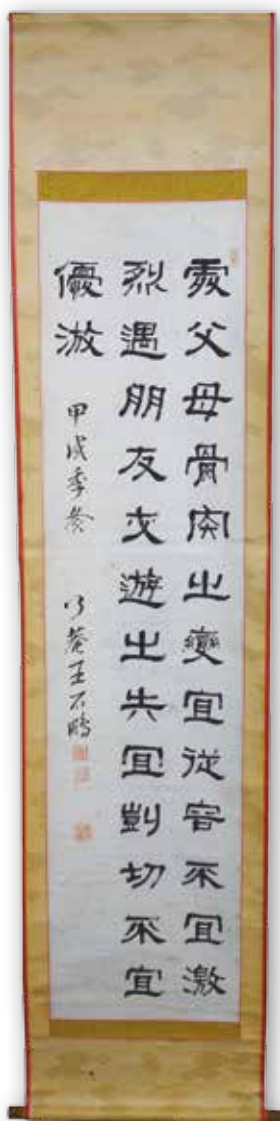 處父母骨肉之變宜從容不宜激
烈遇朋友交遊之失宜剴切不宜
優游
甲戌季
了菴王石鵬